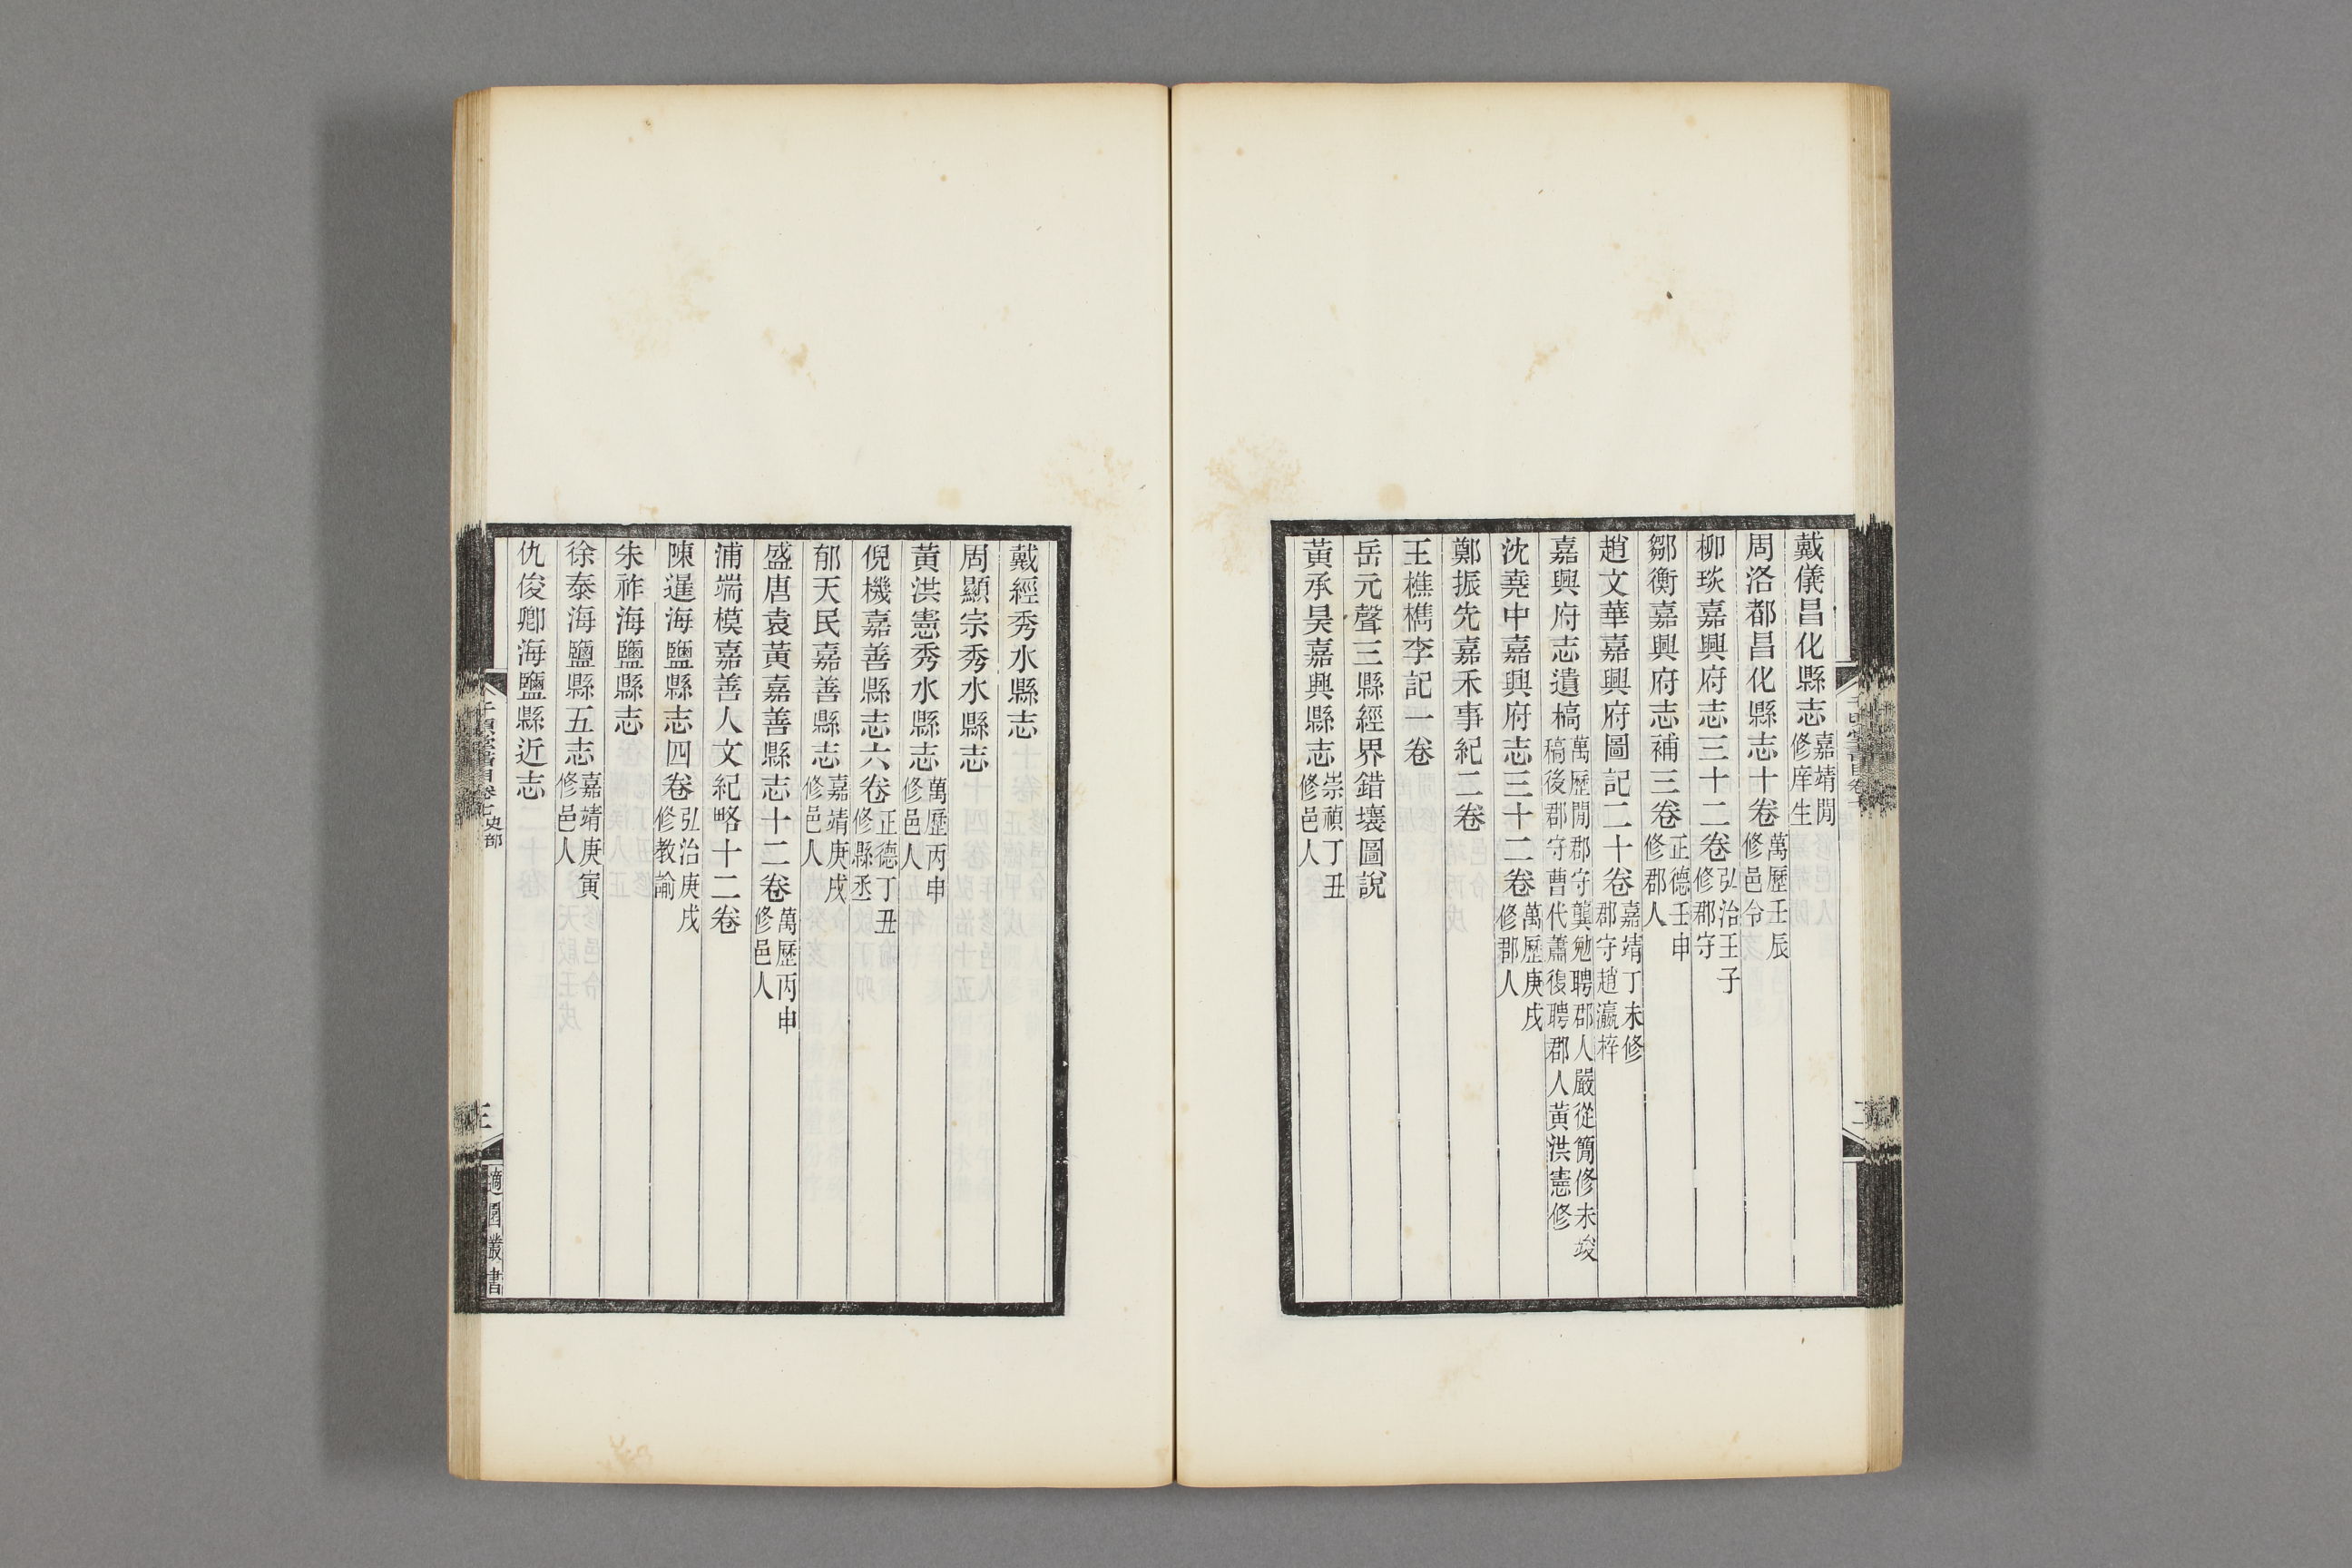 戴儀昌化縣志嘉靖閒修庠生
周洛都昌化縣志十卷萬歷壬辰修邑令
柳琰嘉興府志三十二卷弘治壬子修郡守
鄒衡嘉興府志補三卷正德壬申修郡人
趙文華嘉興府圖記二十卷嘉靖丁未修郡守趙瀛梓
嘉興府志遺槁萬歷閒郡守龔勉聘郡人嚴從簡修未竣稿後郡守曹代蕭復聘郡人黃洪憲修
沈堯中嘉興府志三十二卷萬歷庚戌修郡人
鄭振先嘉禾事紀二卷
王樵檇李記一卷
岳元聲三縣經界錯壤圖說
黃承昊嘉興縣志崇禎丁丑修邑人
戴經秀水縣志
周顯宗秀水縣志
黃洪憲秀水縣志萬歷丙申修邑人
倪機嘉善縣志六卷正德丁丑修縣丞
郁天民嘉善縣志嘉靖庚戌修邑人
盛唐袁黃嘉善縣志十二卷萬歷丙申修邑人
浦端模嘉善人文紀略十二卷
陳暹海鹽縣志四卷弘治庚戌修教諭
朱祚海鹽縣志
徐泰海鹽縣五志嘉靖庚寅修邑人
仇俊卿海鹽縣近志
千頃堂書目卷七史部
三
適園叢書